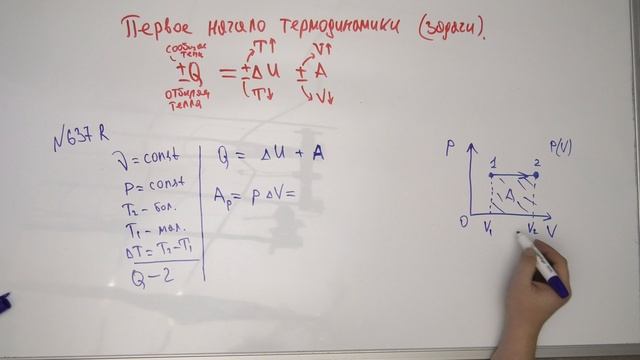 Первое начало термодинамики (задачи).
сообщие тепл T↑ V↑
±Q = ±ΔU ± A
отбирая тепла T↓ V↓
№637 R
ν = const
P = const
T₂ – бол.
T₁ – мал.
ΔT = T₂ – T₁
Q – ?
Q = ΔU + A
Aₚ = p ΔV =
P P(V)
1 2
A
0 V₁ V₂ V